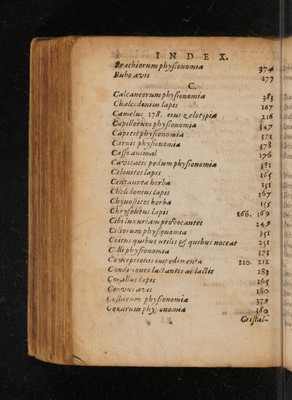 INDEX.
Brachiorum physionomia 374
Bubo avis 277
C.
Calcaneorum physionomia 383
Chalcedonius lapis 167
Camelus 178. eius zelotypia 216
Capillorum physionomia 347
Capitis physionomia 372
Carnis physionomia 378
animal 176
Cavitatis pedum physionomia 381
Celonites lapis 165
Centaurea herba 151
Chelidonius lapis 167
herba 155
Chrysolitus lapis 166. 169
Cibi luxuriam provocantes 249
Ciliorum physionomia 351
Coitus quibus utilis & quibus noceat 251
Colli physionomia 373
Conceptionis impedimenta 210. 212
Conditiones lactantis ac lactis 283
Corallus lapis 165
Corvus avis 280
Costarum physionomia 379
Coxarum physionomia 380
Cristal-